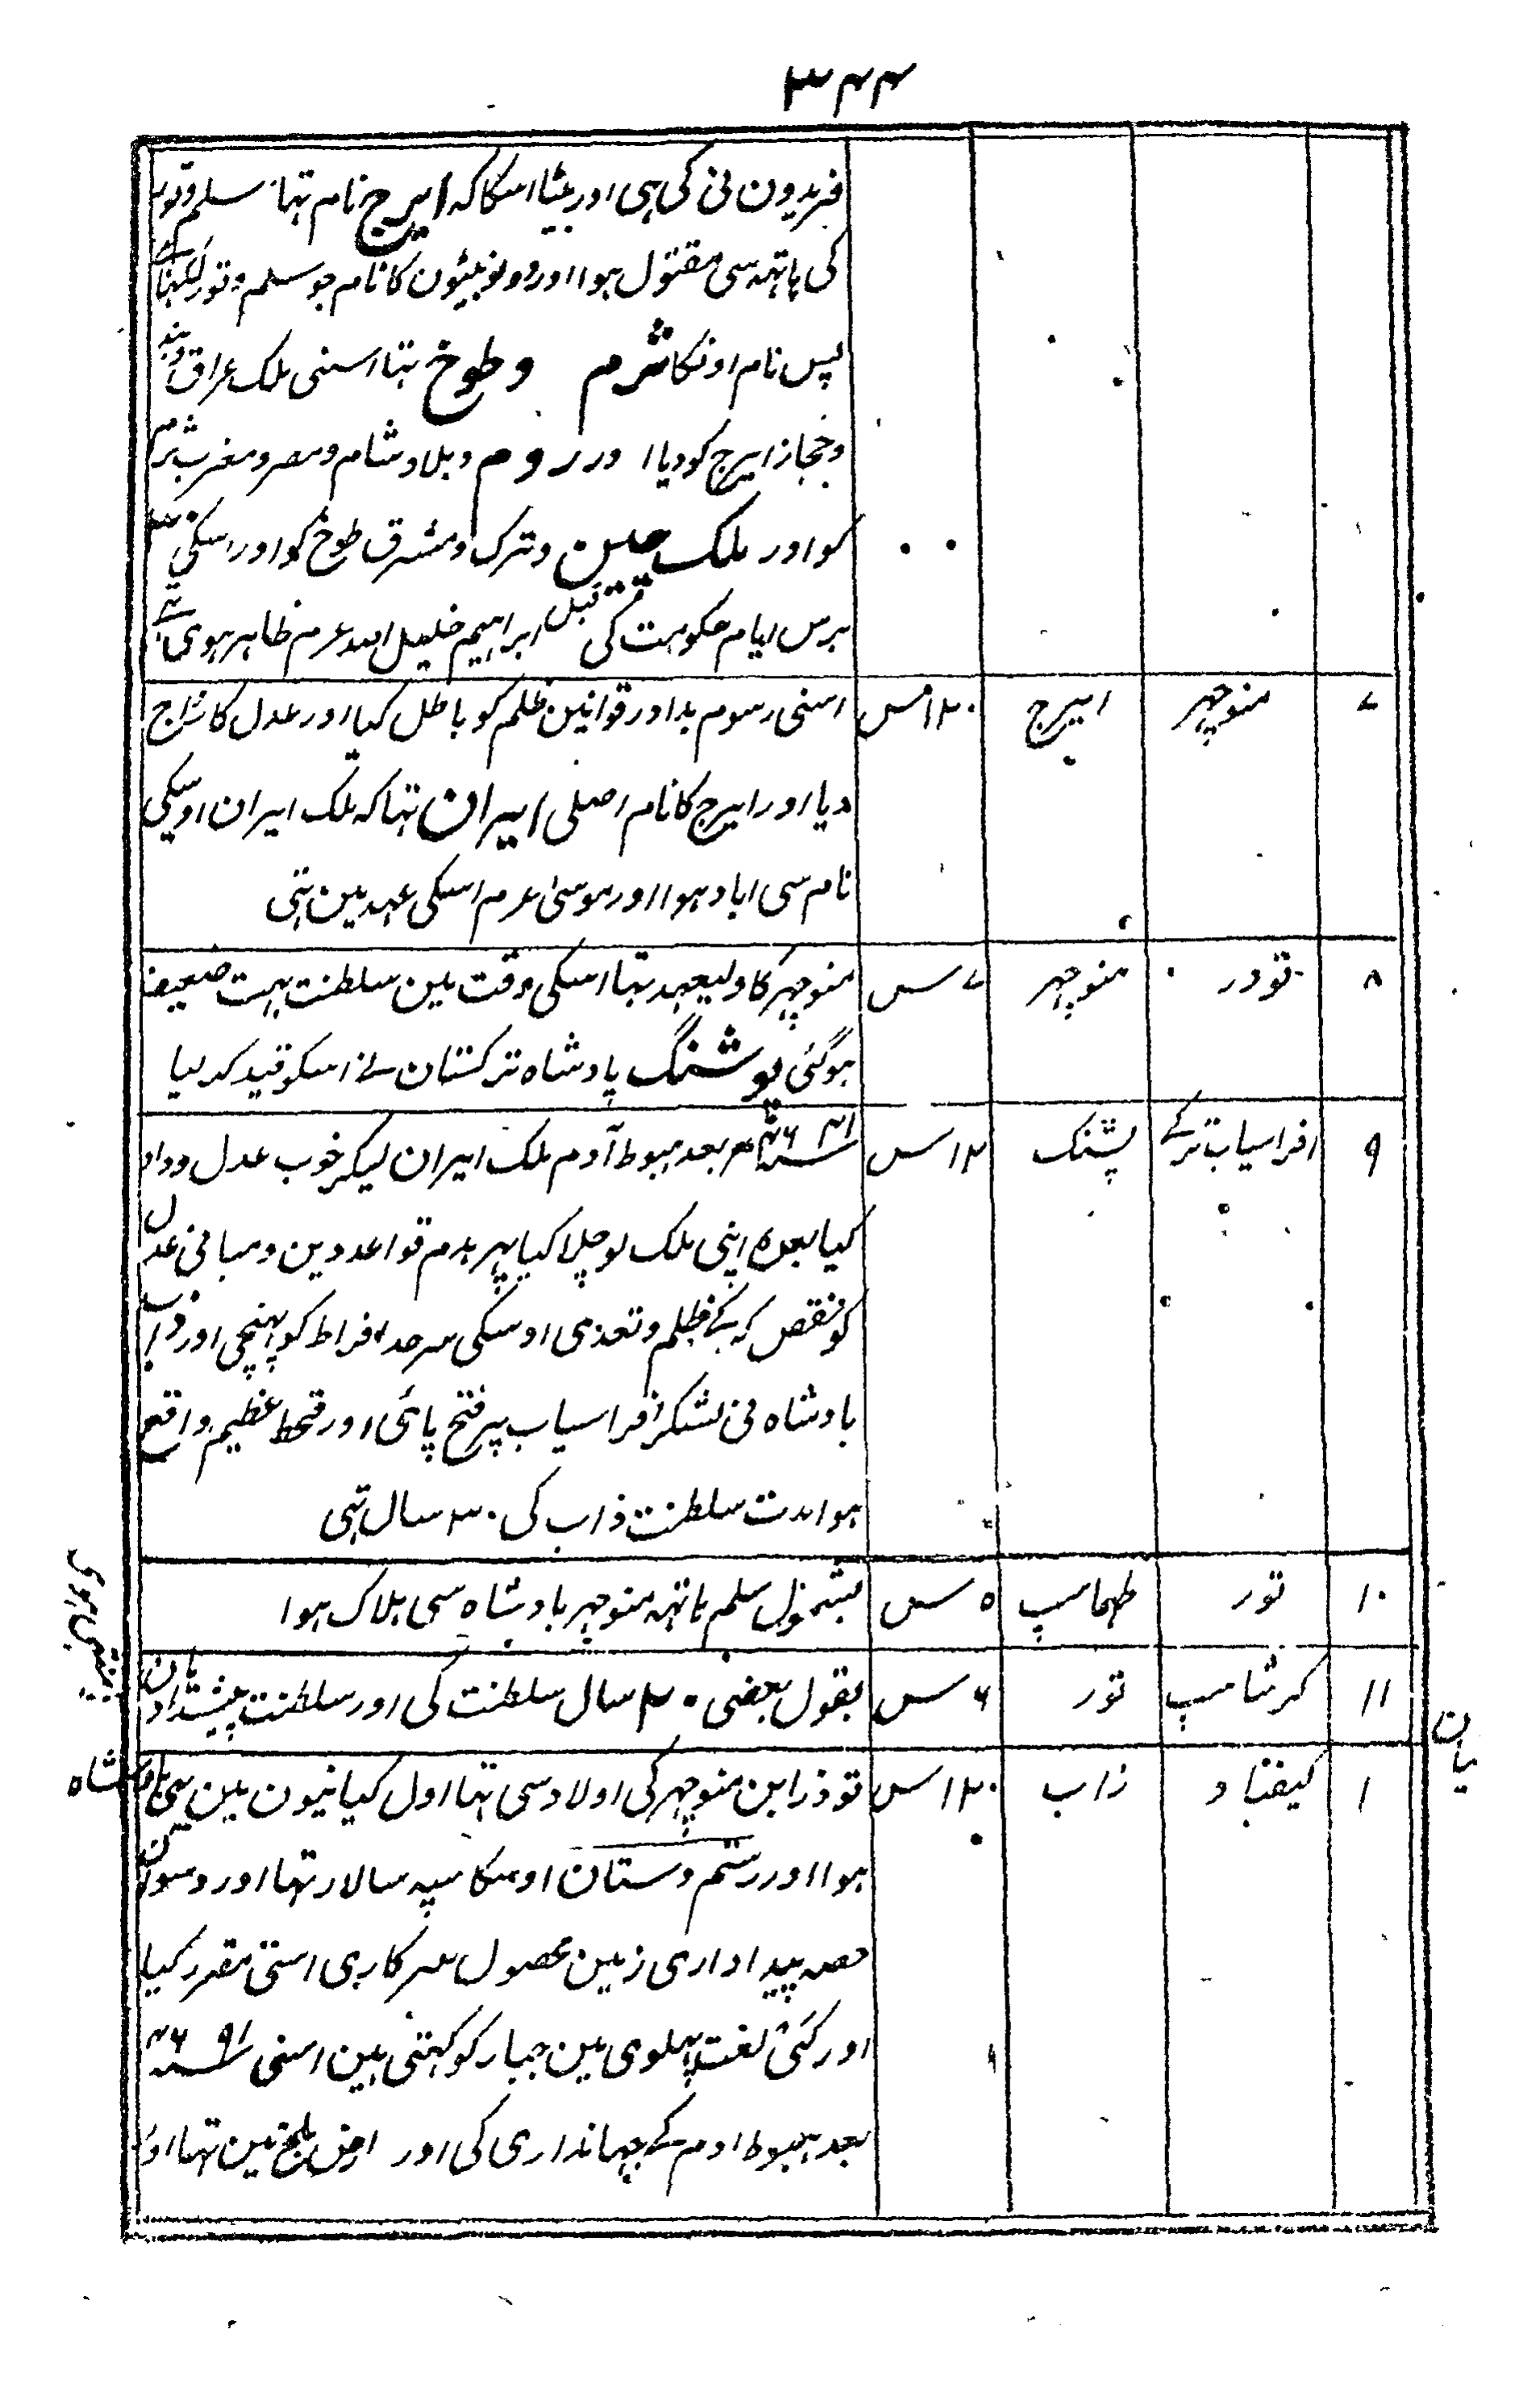 ۳۴۴
فریدون نی کی ہی اور بیٹا اسکا کہ ایرج نام تہا سلم و تور
کی ہاتہہ سی مقتول ہوا اور دونو بیٹون کا نام جو سلم و تور لکہتا ہے
پس نام اونکا شرم و طوخ تہا اسنی ملک عراق و ہند
و حجاز ایرج کو دیا اور روم و بلاد شام و مصر و مغرب شرم
کو اور ملک چین و ترک و مشرق طوخ کو اور اسکی ۳۰
برس ایام حکومت کی قبل ابراہیم خلیل اللہ عرم ظاہر ہوی تہے
۷ منوچہر ایرج ۱۲۰س اسنی رسوم بد اور قوانین ظلم کو باطل کیا اور عدل کا رواج
دیا اور ایرج کا نام اصلی ایران تہا کہ ملک ایران اوسیکی
نام سی اباد ہوا اور موسیٰ عرم اسکی عہد مین تہی
۸ تودر منوچہر ۷س منوچہر کا ولیعہد تہا اسکی وقت مین سلطنت بہت ضعیف
ہوگئی پوشنگ پادشاہ ترکستان نے اسکو قید کر لیا
۹ افراسیاب ترکے پشنگ ۱۲س بعد ہبوط آدم ملک ایران لیکر خوب عدل و داد
کیا بعدہ اپنی ملک کو چلا گیا پہر ہدم قواعد دین و مبانی عدل
کو نقص کر کے ظلم و تعدی اوسکی سرحد افراط کو پہنچی اور ذاب
بادشاہ نی لشکر افراسیاب پر فتح پائی اور قحط عظیم واقع
ہوا مدت سلطنت ذاب کی ۳۰ سال تہی
۱۰ تور طہماسپ ۵س بشمول سلم ہاتہہ منوچہر بادشاہ سی ہلاک ہوا
۱۱ کرشاسپ تور ۶س بقول بعضی ۲۰ سال سلطنت کی اور سلطنت پیشدادیان
۱ کیقباد زاب ۱۲۰س توذر ابن منوچہر کی اولاد سی تہا اول کیانیون مین سی بادشاہ
ہوا اور رستم دستان اوسکا سپہ سالار تہا اور دسوان
حصہ پیداداری زمین محصول سرکاری اسنی مقرر کیا
اور کئی لغت پہلوی مین جبار کو کہتی ہین اسنی
بعد ہبوط ادم کے جہانداری کی اور ارض بلخ مین تہا